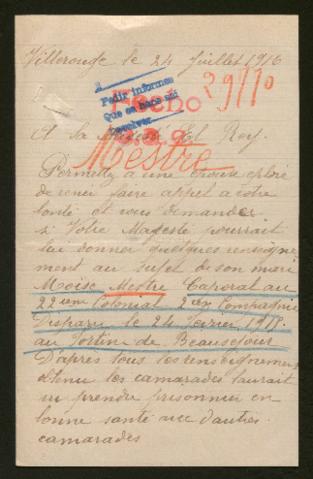 Villerouge le 24 Juillet 1916
29/10
Pedir informes
que se hace mi
Hecho
A Sa Majesté El Rey.
Mestre
Permettez a une épouse
de venir faire appel a votre
bonté et vous demander
si Votre Majesté pourrait
lui donner quelques renseigne
ment au sujet de son mari
Moïse Mestre Caporal au
22ieme Colonial 2eme Compagnie
Disparu le 24 février 1915.
au Fortin de Beausejour
D'aprés tous les renseignements
obtenu les camarades l'aurait
vu prendre prisonnier en
bonne santé avec d'autres
camarades